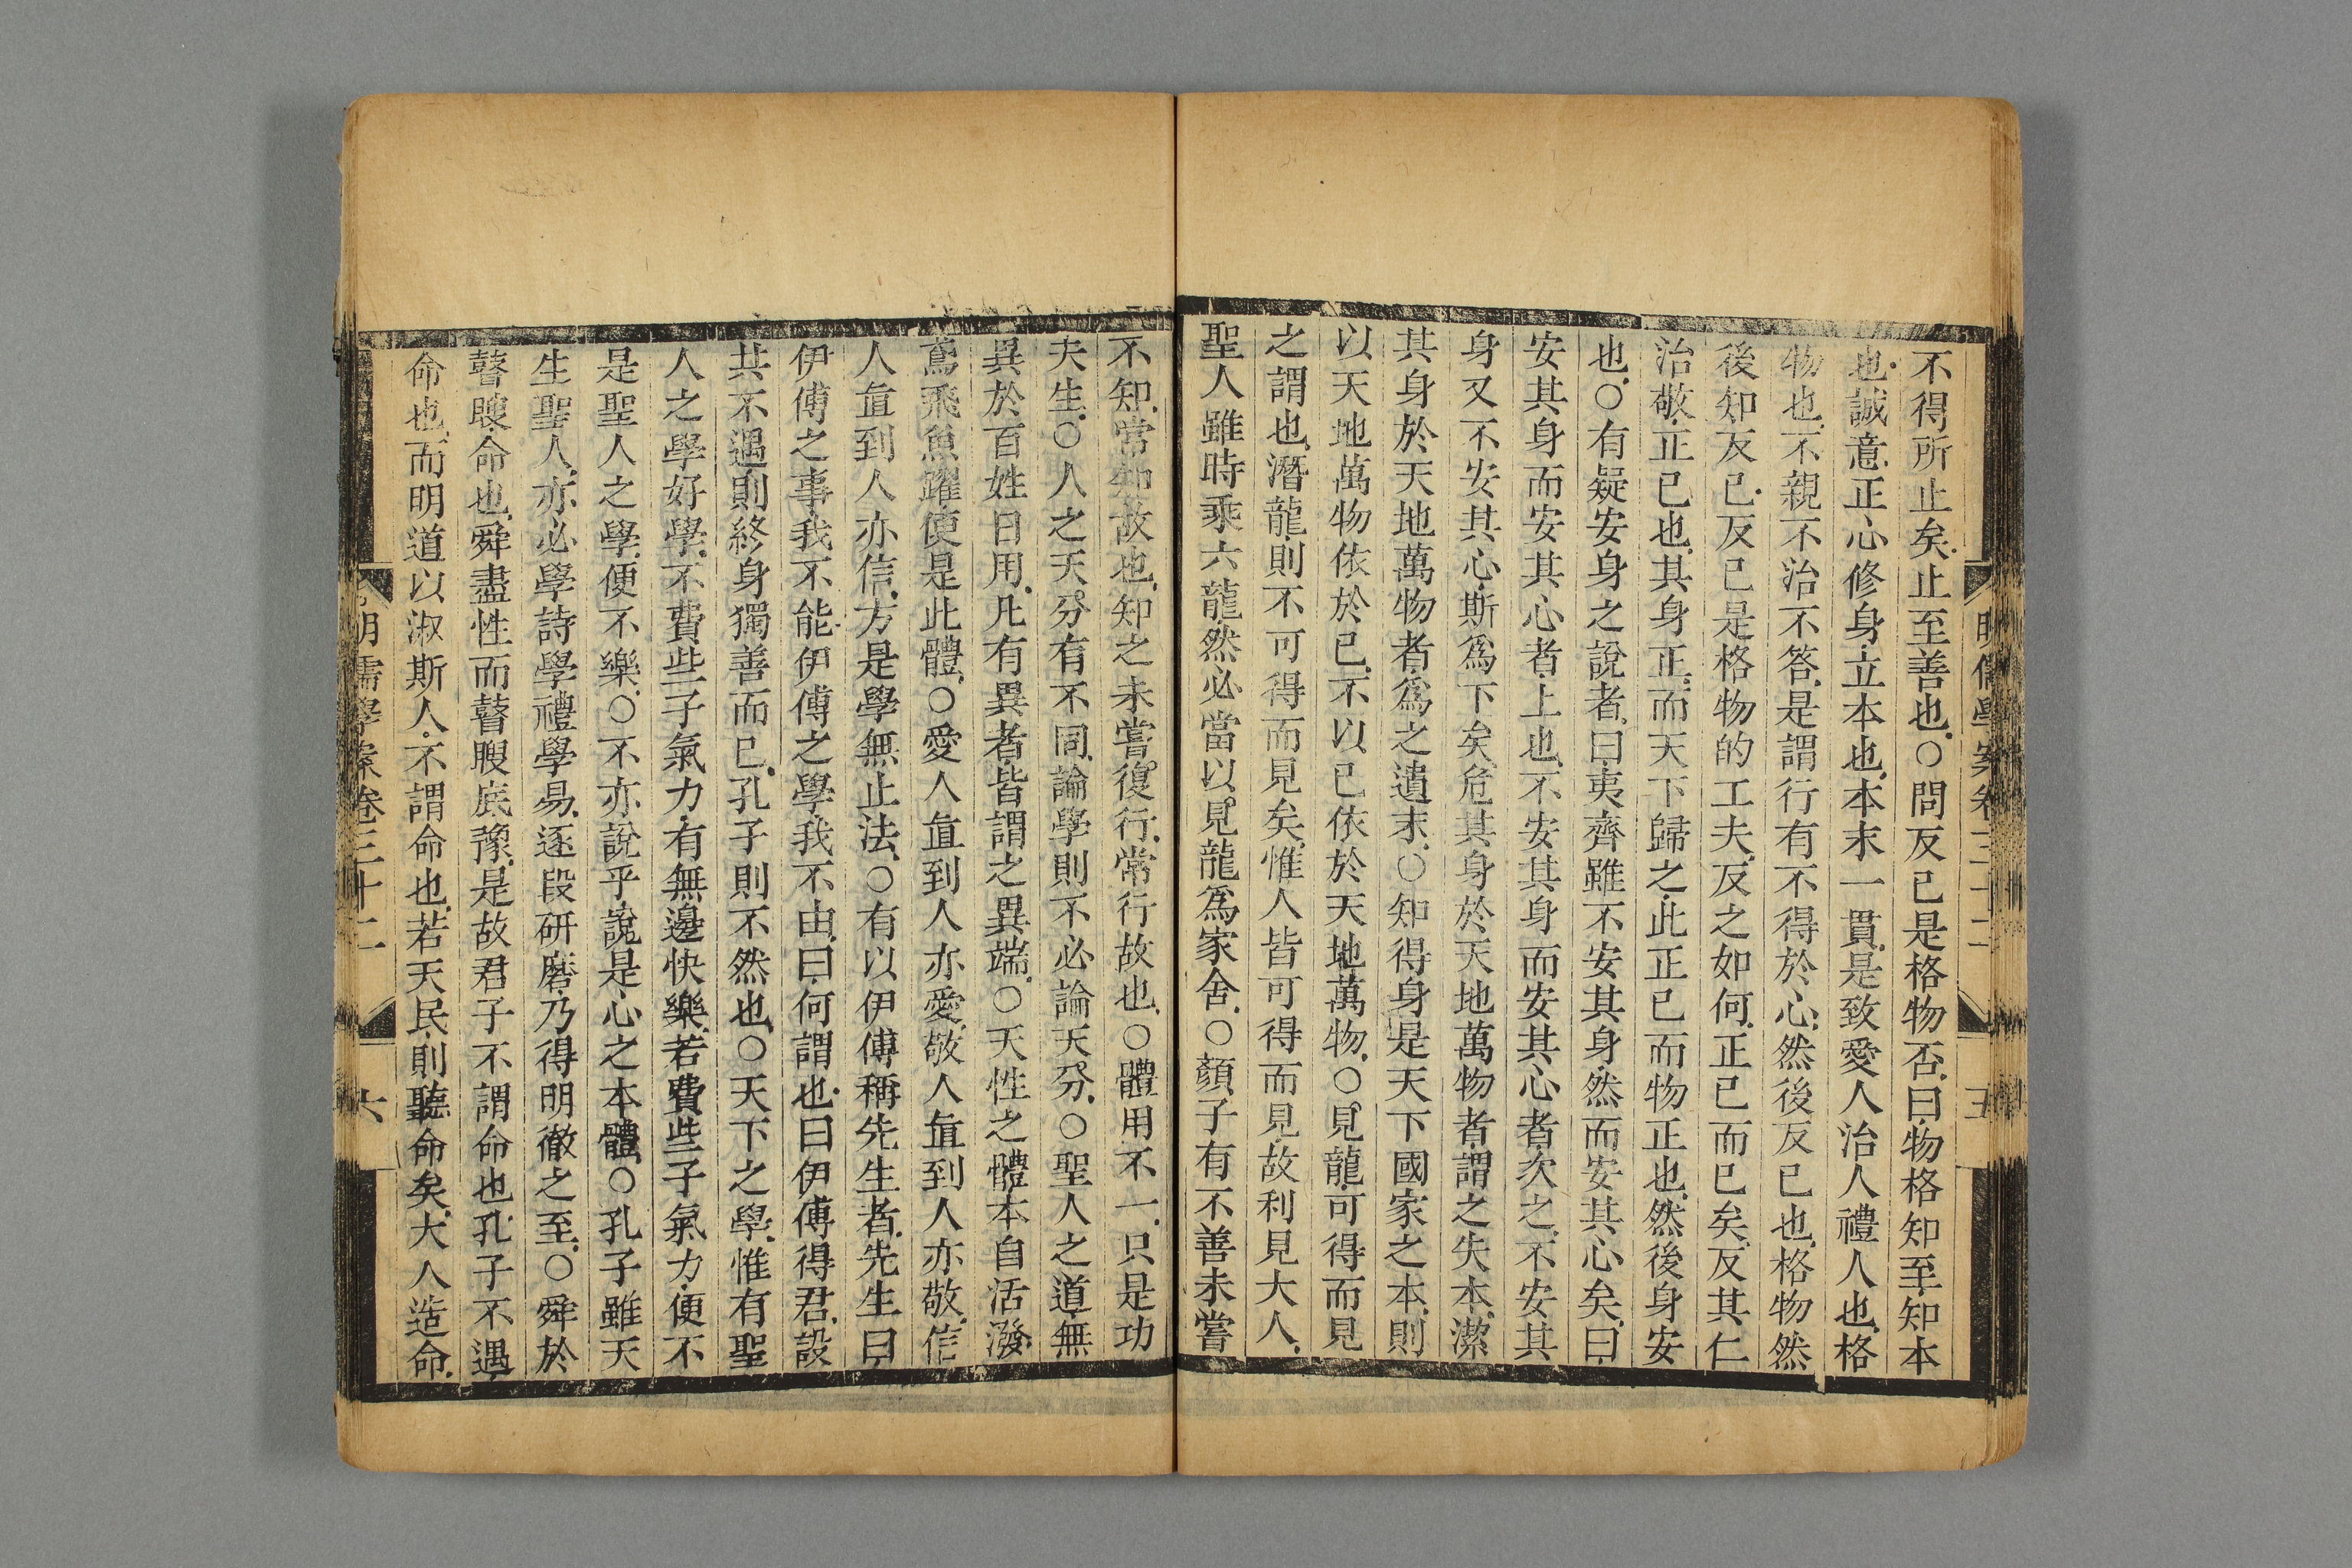 明儒學案卷三十二
五
不得所止矣止至善也○問反己是格物否曰物格知至知本
也誠意正心修身立本也本末一貫是致愛人治人禮人也格
物也不親不治不答是謂行有不得於心然後反己也格物然
後知反己反己是格物的工夫反之如何正己而已矣反其仁
治敬正己也其身正而天下歸之此正己而物正也然後身安
也○有疑安身之說者曰夷齊雖不安其身然而安其心矣曰
安其身而安其心者上也不安其身而安其心者次之不安其
身又不安其心斯為下矣危其身於天地萬物者謂之失本潔
其身於天地萬物者為之遺末○知得身是天下國家之本則
以天地萬物依於己不以己依於天地萬物○見龍可得而見
之謂也潛龍則不可得而見矣惟人皆可得而見故利見大人
聖人雖時乘六龍然必當以見龍為家舍○顏子有不善未嘗
不知常知故也知之未嘗復行常行故也○體用不一只是功
夫生○人之天分有不同論學則不必論天分○聖人之道無
異於百姓日用凡有異者皆謂之異端○天性之體本自活潑
鳶飛魚躍便是此體○愛人直到人亦愛敬人直到人亦敬信
人直到人亦信方是學無止法○有以伊傅稱先生者先生曰
伊傅之事我不能伊傅之學我不由曰何謂也曰伊傅得君設
其不遇則終身獨善而已孔子則不然也○天下之學惟有聖
人之學好學不費些子氣力有無邊快樂若費些子氣力便不
是聖人之學便不樂○不亦說乎說是心之本體○孔子雖天
生聖人亦必學詩學禮學易逐段研磨乃得明徹之至○舜於
瞽瞍命也舜盡性而瞽瞍底豫是故君子不謂命也孔子不遇
命也而明道以淑斯人不謂命也若天民則聽命矣大人造命
明儒學案卷三十二
六